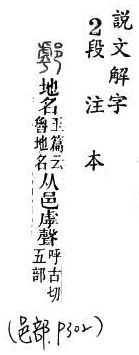 説文解字
2段注本
地名玉篇云魯地名从邑虖聲呼古切五部
(邑部.P302)